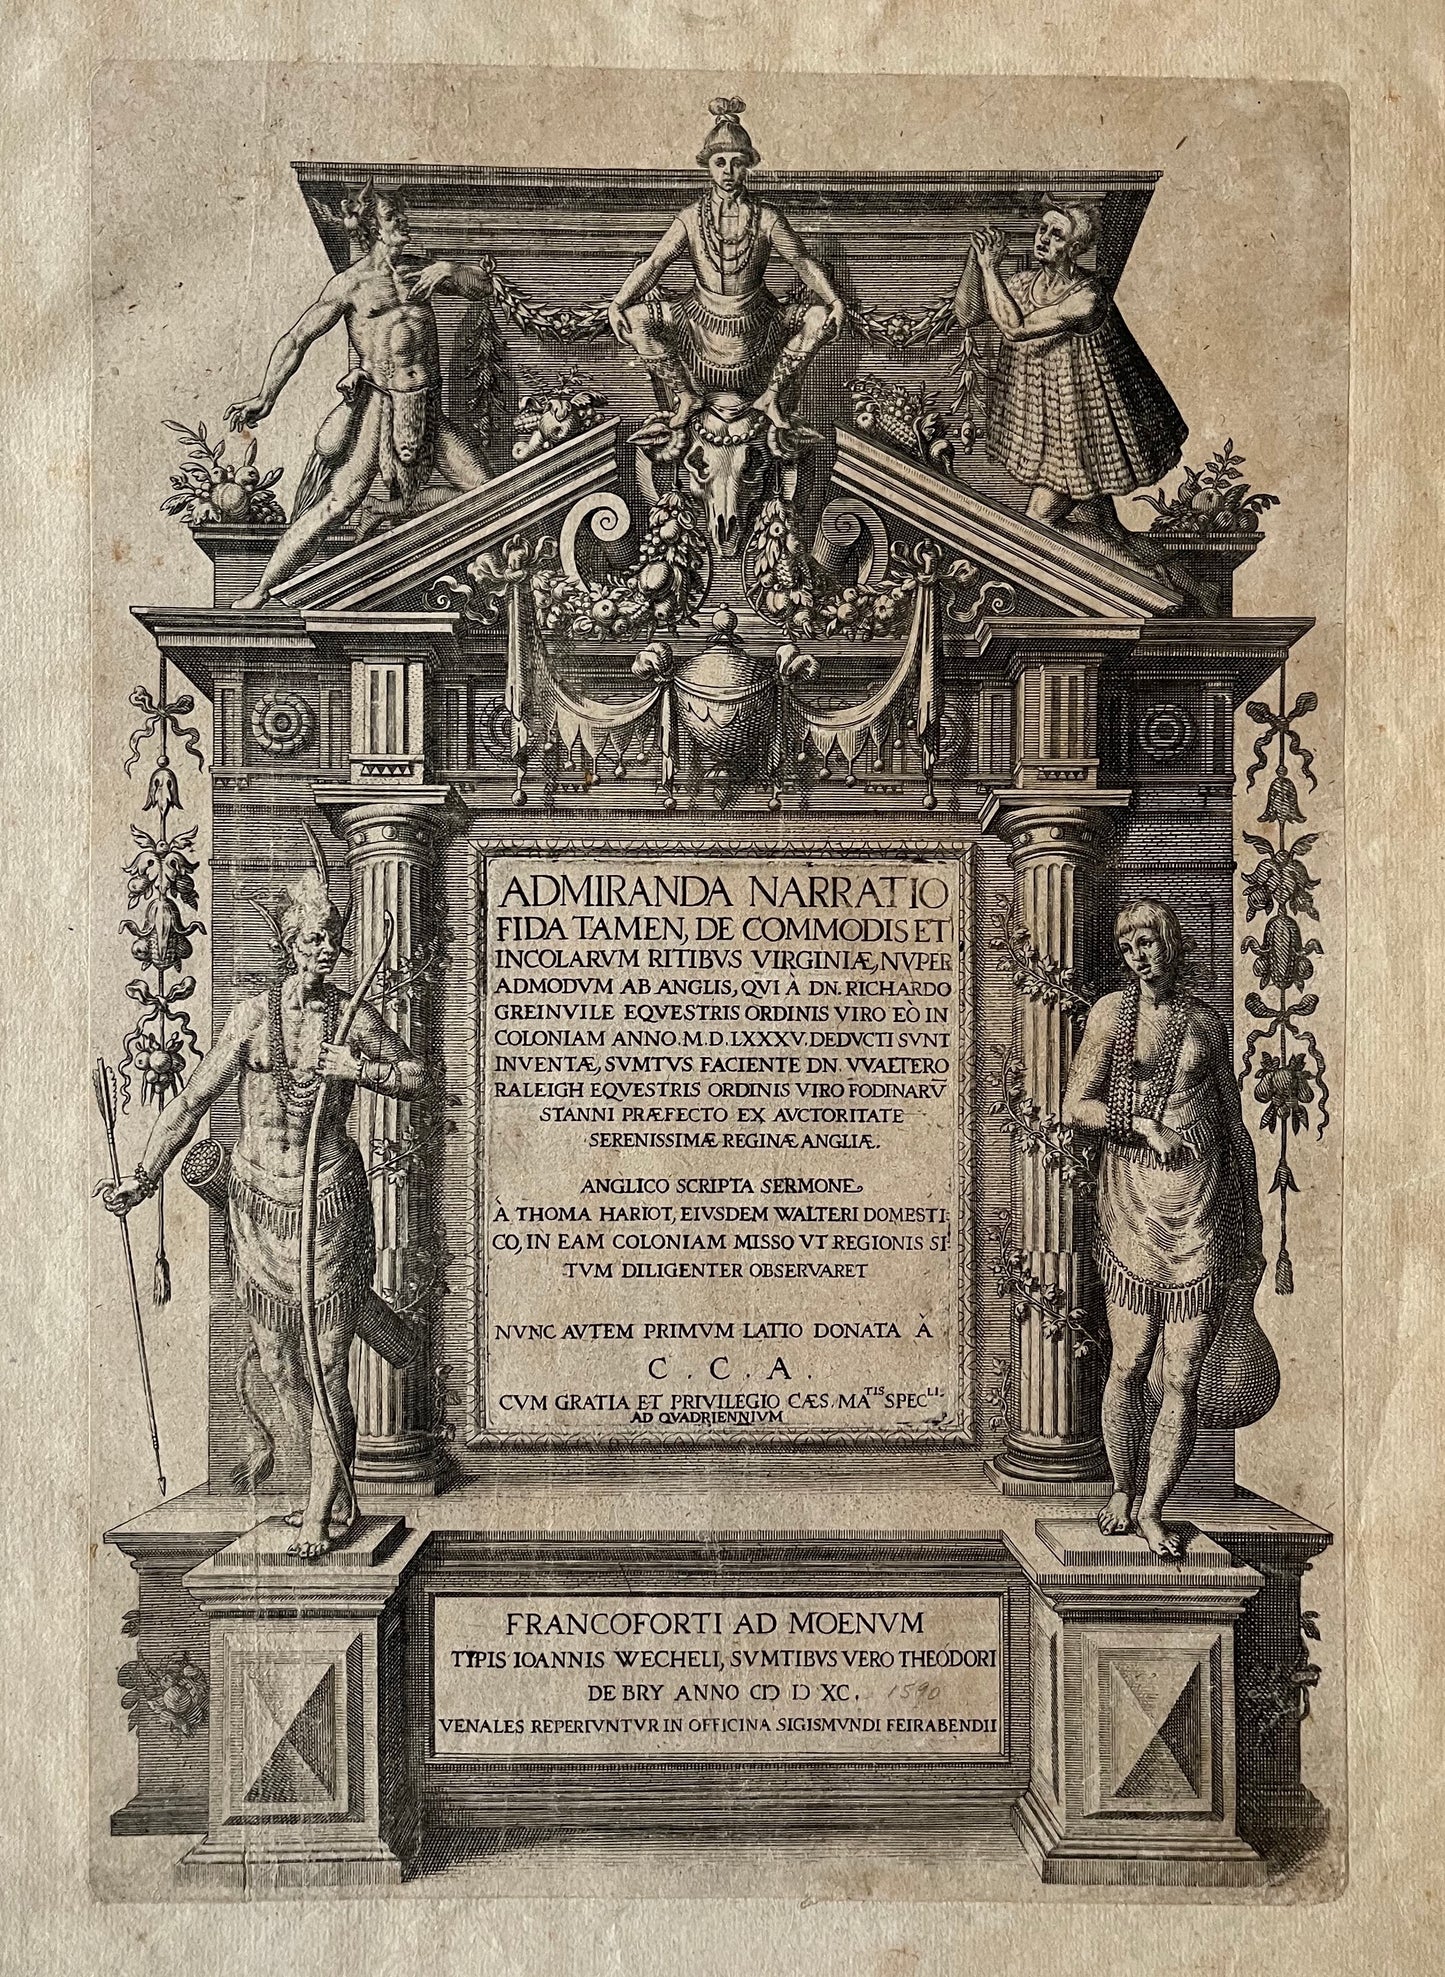 ADMIRANDA NARRATIO
FIDA TAMEN, DE COMMODIS ET
INCOLARVM RITIBVS VIRGINIÆ, NVPER
ADMODVM AB ANGLIS, QVI À DN. RICHARDO
GREINVILE EQVESTRIS ORDINIS VIRO EÒ IN
COLONIAM ANNO. M.D.LXXXV. DEDVCTI SVNT
INVENTÆ, SVMTVS FACIENTE DN. VVALTERO
RALEIGH EQVESTRIS ORDINIS VIRO FODINARV̄
STANNI PRÆFECTO EX AVCTORITATE
SERENISSIMÆ REGINÆ ANGLIÆ.
ANGLICO SCRIPTA SERMONE
À THOMA HARIOT, EIVSDEM WALTERI DOMESTI:
CO, IN EAM COLONIAM MISSO VT REGIONIS SI:
TVM DILIGENTER OBSERVARET
NVNC AVTEM PRIMVM LATIO DONATA À
C. C. A.
CVM GRATIA ET PRIVILEGIO CÆS. MA^TIS SPEC^LI.
AD QVADRIENNIVM
FRANCOFORTI AD MOENVM
TYPIS IOANNIS WECHELI, SVMTIBVS VERO THEODORI
DE BRY ANNO CIƆ D XC. 1590
VENALES REPERIVNTVR IN OFFICINA SIGISMVNDI FEIRABENDII